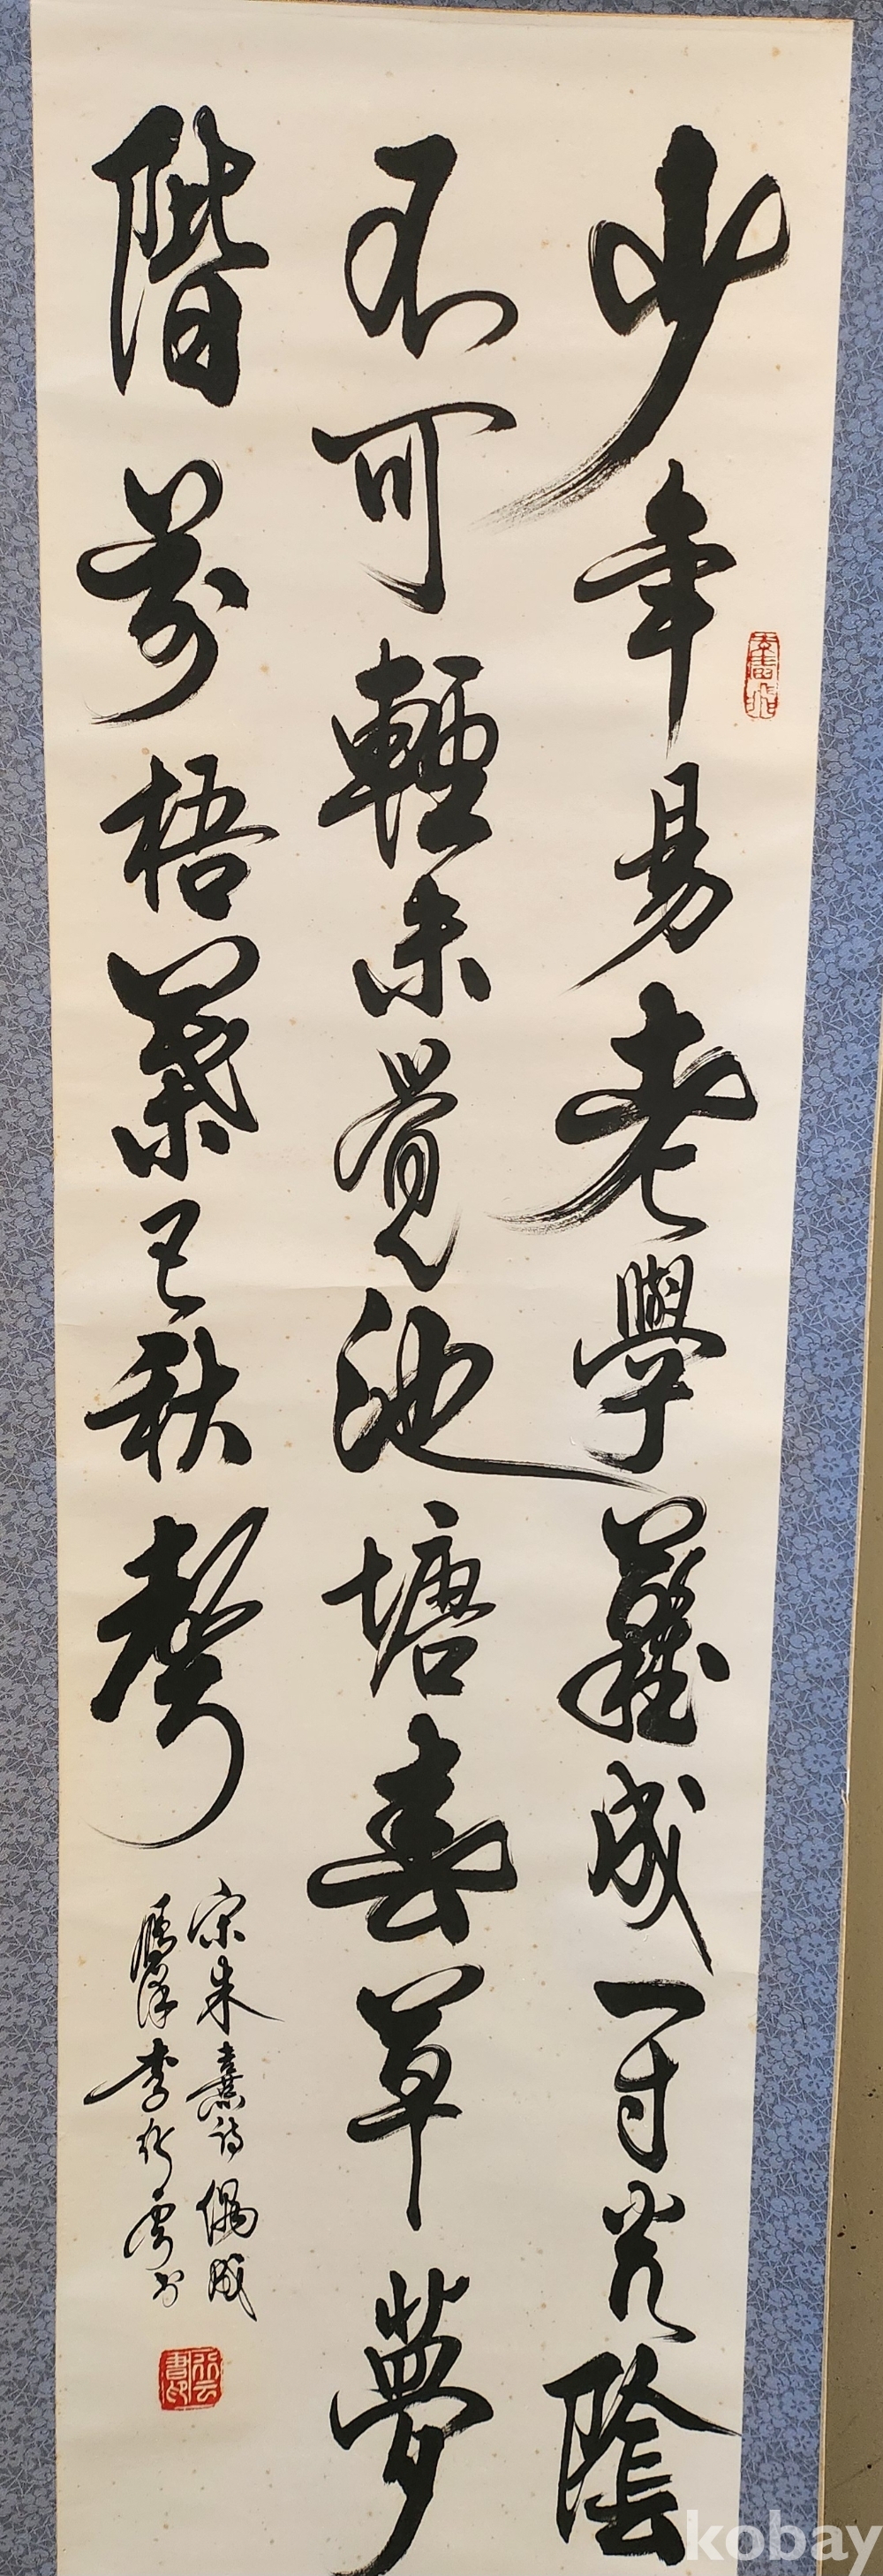 少年易老學難成一寸光陰
不可輕未覺池塘春草夢
階前梧葉已秋聲
宋朱熹詩偶成
李行雲书
行云書印
kobay